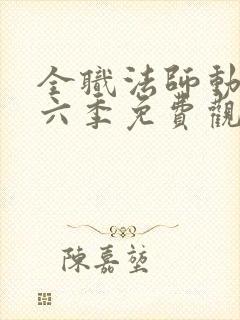 全職法師動
六季免費觀
陳嘉堃